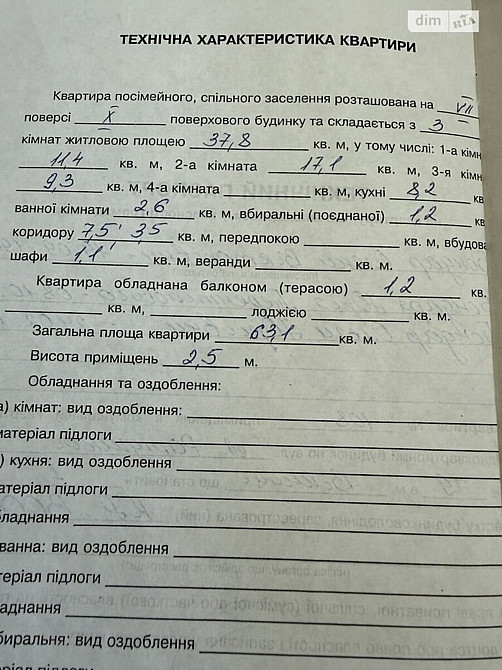 dim RIA
ТЕХНІЧНА ХАРАКТЕРИСТИКА КВАРТИРИ
Квартира посімейного, спільного заселення розташована на VII
поверсі X поверхового будинку та складається з 3
кімнат житловою площею 37,8 кв. м, у тому числі: 1-а кімн
11.4 кв. м, 2-а кімната 17,1 кв. м, 3-я кімн
9,3 кв. м, 4-а кімната кв. м, кухні 8,2 кв
ванної кімнати 2,6 кв. м, вбиральні (поєднаної) 1,2 кв
коридору 7,5; 3,5 кв. м, передпокою кв. м, вбудова
шафи 1,1 кв. м, веранди кв. м.
Квартира обладнана балконом (терасою) 1,2 кв.
кв. м, лоджією кв. м.
Загальна площа квартири 63,1 кв. м.
Висота приміщень 2,5 м.
Обладнання та оздоблення:
а) кімнат: вид оздоблення:
матеріал підлоги
) кухня: вид оздоблення
атеріал підлоги
бладнання
ванна: вид оздоблення
теріал підлоги
аднання
биральня: вид оздоблення
ріал підлоги